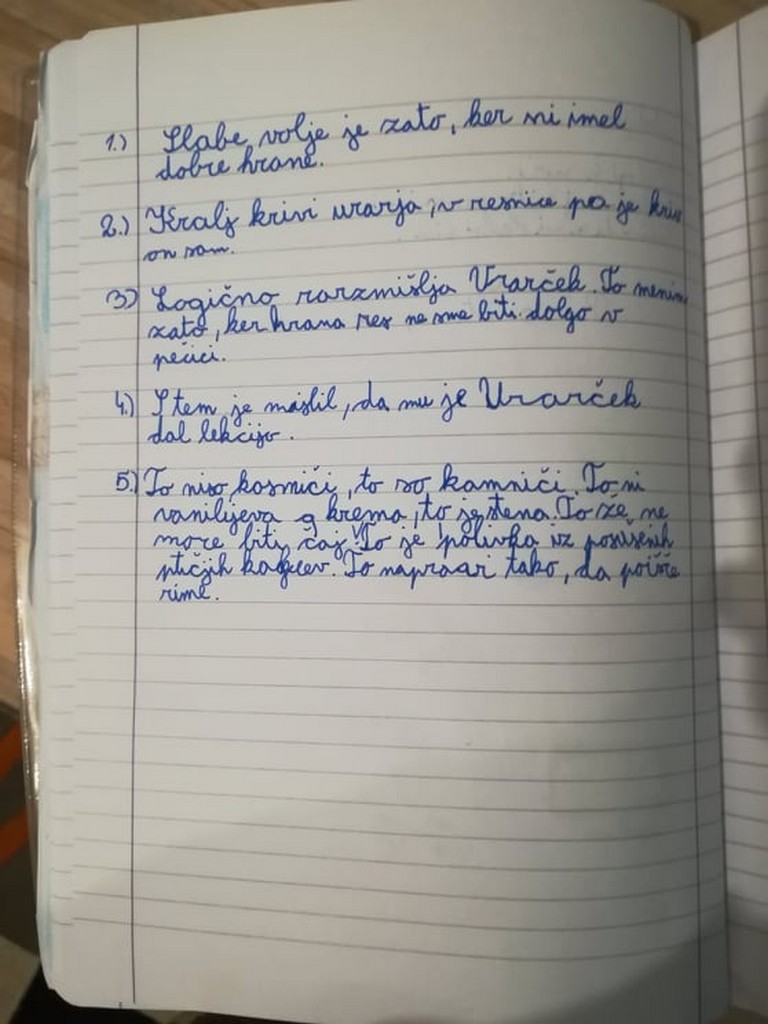 1.) Slabe volje je zato, ker ni imel
dobre hrane.
2.) Kralj krivi urarja, v resnici pa je kriv
on sam.
3.) Logično rarzmišlja Vrarček. To menim
zato, ker hrana res ne sme biti dolgo v
pečici.
4.) S tem je mislil, da mu je Vrarček
dal lekcijo.
5.) To niso kosmiči, to so kamniči. To ni
vanilijeva krema, to je stena. To že ne
more biti čaj. To je polivka iz posušenih
ptičjih kakcev. To napravi tako, da poišče
rime.